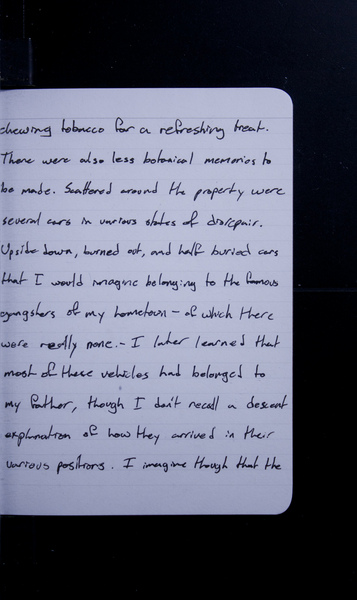 chewing tobacco for a refreshing treat.
There were also less botanical memories to
be made. Scattered around the property were
several cars in various states of disrepair.
Upside down, burned out, and half buried cars
that I would imagine belonging to the famous
gangsters of my hometown - of which there
were really none. - I later learned that
most of these vehicles had belonged to
my father, though I don't recall a descent
explanation of how they arrived in their
various positions. I imagine though that the